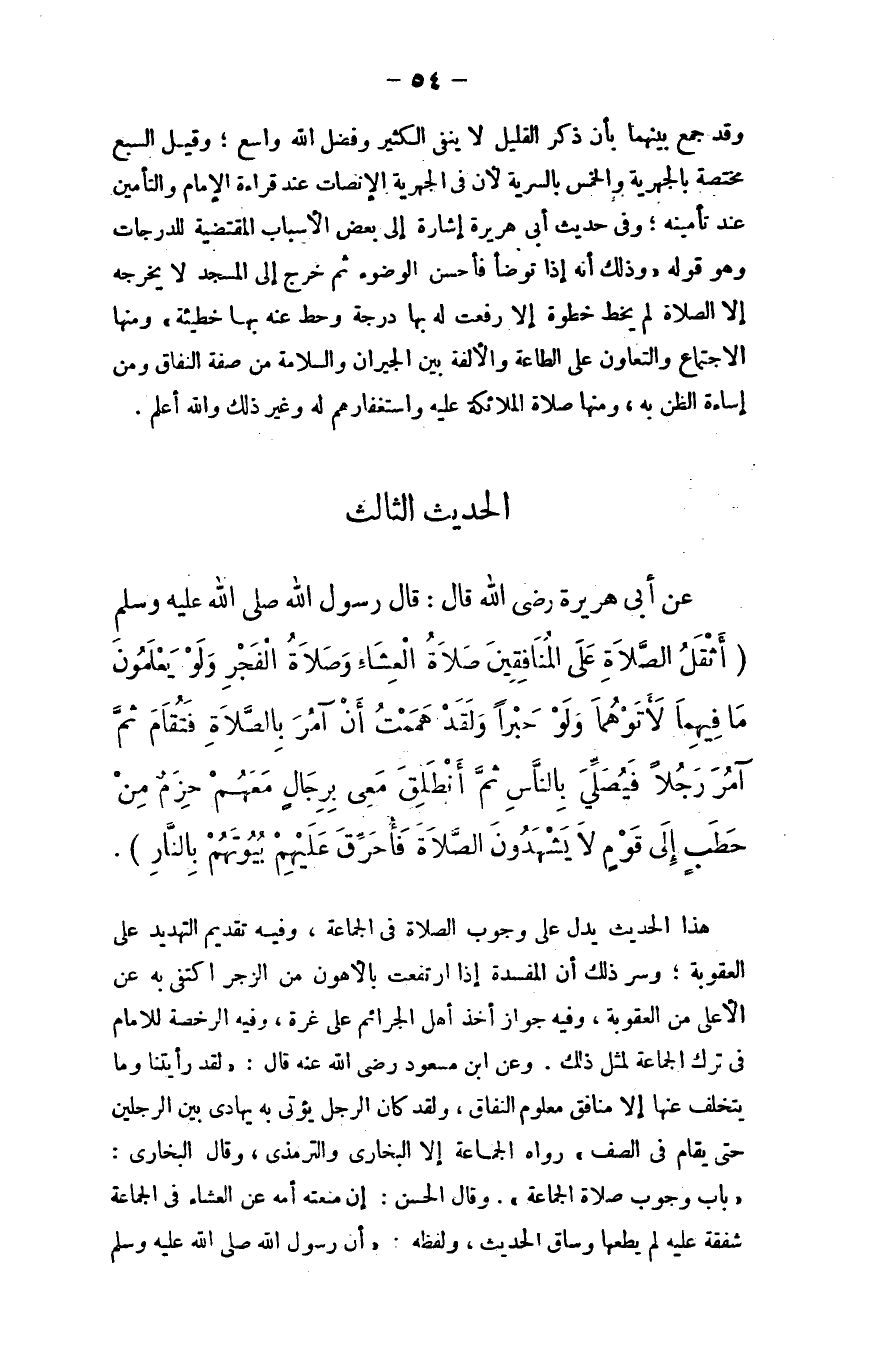 — ٥٤ —
وقد جمع بينهما بأن ذكر القليل لا ينفى الكثير وفضل الله واسع ؛ وقيل السبع
مختصة بالجهرية والخمس بالسرية لأن فى الجهرية الإنصات عند قراءة الإمام والتأمين
عند تأمينه ؛ وفى حديث أبى هريرة إشارة إلى بعض الأسباب المقتضية للدرجات
وهو قوله « وذلك أنه إذا توضأ فأحسن الوضوء ثم خرج إلى المسجد لا يخرجه
إلا الصلاة لم يخط خطوة إلا رفعت له بها درجة وحط عنه بها خطيئة » ومنها
الاجتماع والتعاون على الطاعة والألفة بين الجيران والسلامة من صفة النفاق ومن
إساءة الظن به ، ومنها صلاة الملائكة عليه واستغفارهم له وغير ذلك والله أعلم .
الحديث الثالث
عن أبى هريرة رضى الله قال : قال رسول الله صلى الله عليه وسلم
( أَثْقَلُ الصَّلَاةِ عَلَى الْمُنَافِقِينَ صَلَاةُ الْعِشَاءِ وَصَلَاةُ الْفَجْرِ وَلَوْ يَعْلَمُونَ
مَا فِيهِمَا لَأَتَوْهُمَا وَلَوْ حَبْراً وَلَقَدْ هَمَمْتُ أَنْ آمُرَ بِالصَّلَاةِ فَتُقَامَ ثُمَّ
آمُرَ رَجُلاً فَيُصَلِّيَ بِالنَّاسِ ثُمَّ أَنْطَلِقَ مَعِى بِرِجَالٍ مَعَهُمْ حِزَمٌ مِنْ
حَطَبٍ إِلَى قَوْمٍ لَا يَشْهَدُونَ الصَّلَاةَ فَأُحَرِّقَ عَلَيْهِمْ بُيُوتَهُمْ بِالنَّارِ ) .
هذا الحديث يدل على وجوب الصلاة فى الجماعة ، وفيه تقديم التهديد على
العقوبة ؛ وسر ذلك أن المفسدة إذا ارتفعت بالأهون من الزجر اكتفى به عن
الأعلى من العقوبة ، وفيه جواز أخذ أهل الجرائم على غرة ، وفيه الرخصة للامام
فى ترك الجماعة لمثل ذلك . وعن ابن مسعود رضى الله عنه قال : « لقد رأيتنا وما
يتخلف عنها إلا منافق معلوم النفاق ، ولقد كان الرجل يؤتى به يهادى بين الرجلين
حتى يقام فى الصف » رواه الجماعة إلا البخارى والترمذى ، وقال البخارى :
« باب وجوب صلاة الجماعة » . وقال الحسن : إن منعته أمه عن العشاء فى الجماعة
شفقة عليه لم يطعها وساق الحديث ، ولفظه : « أن رسول الله صلى الله عليه وسلم